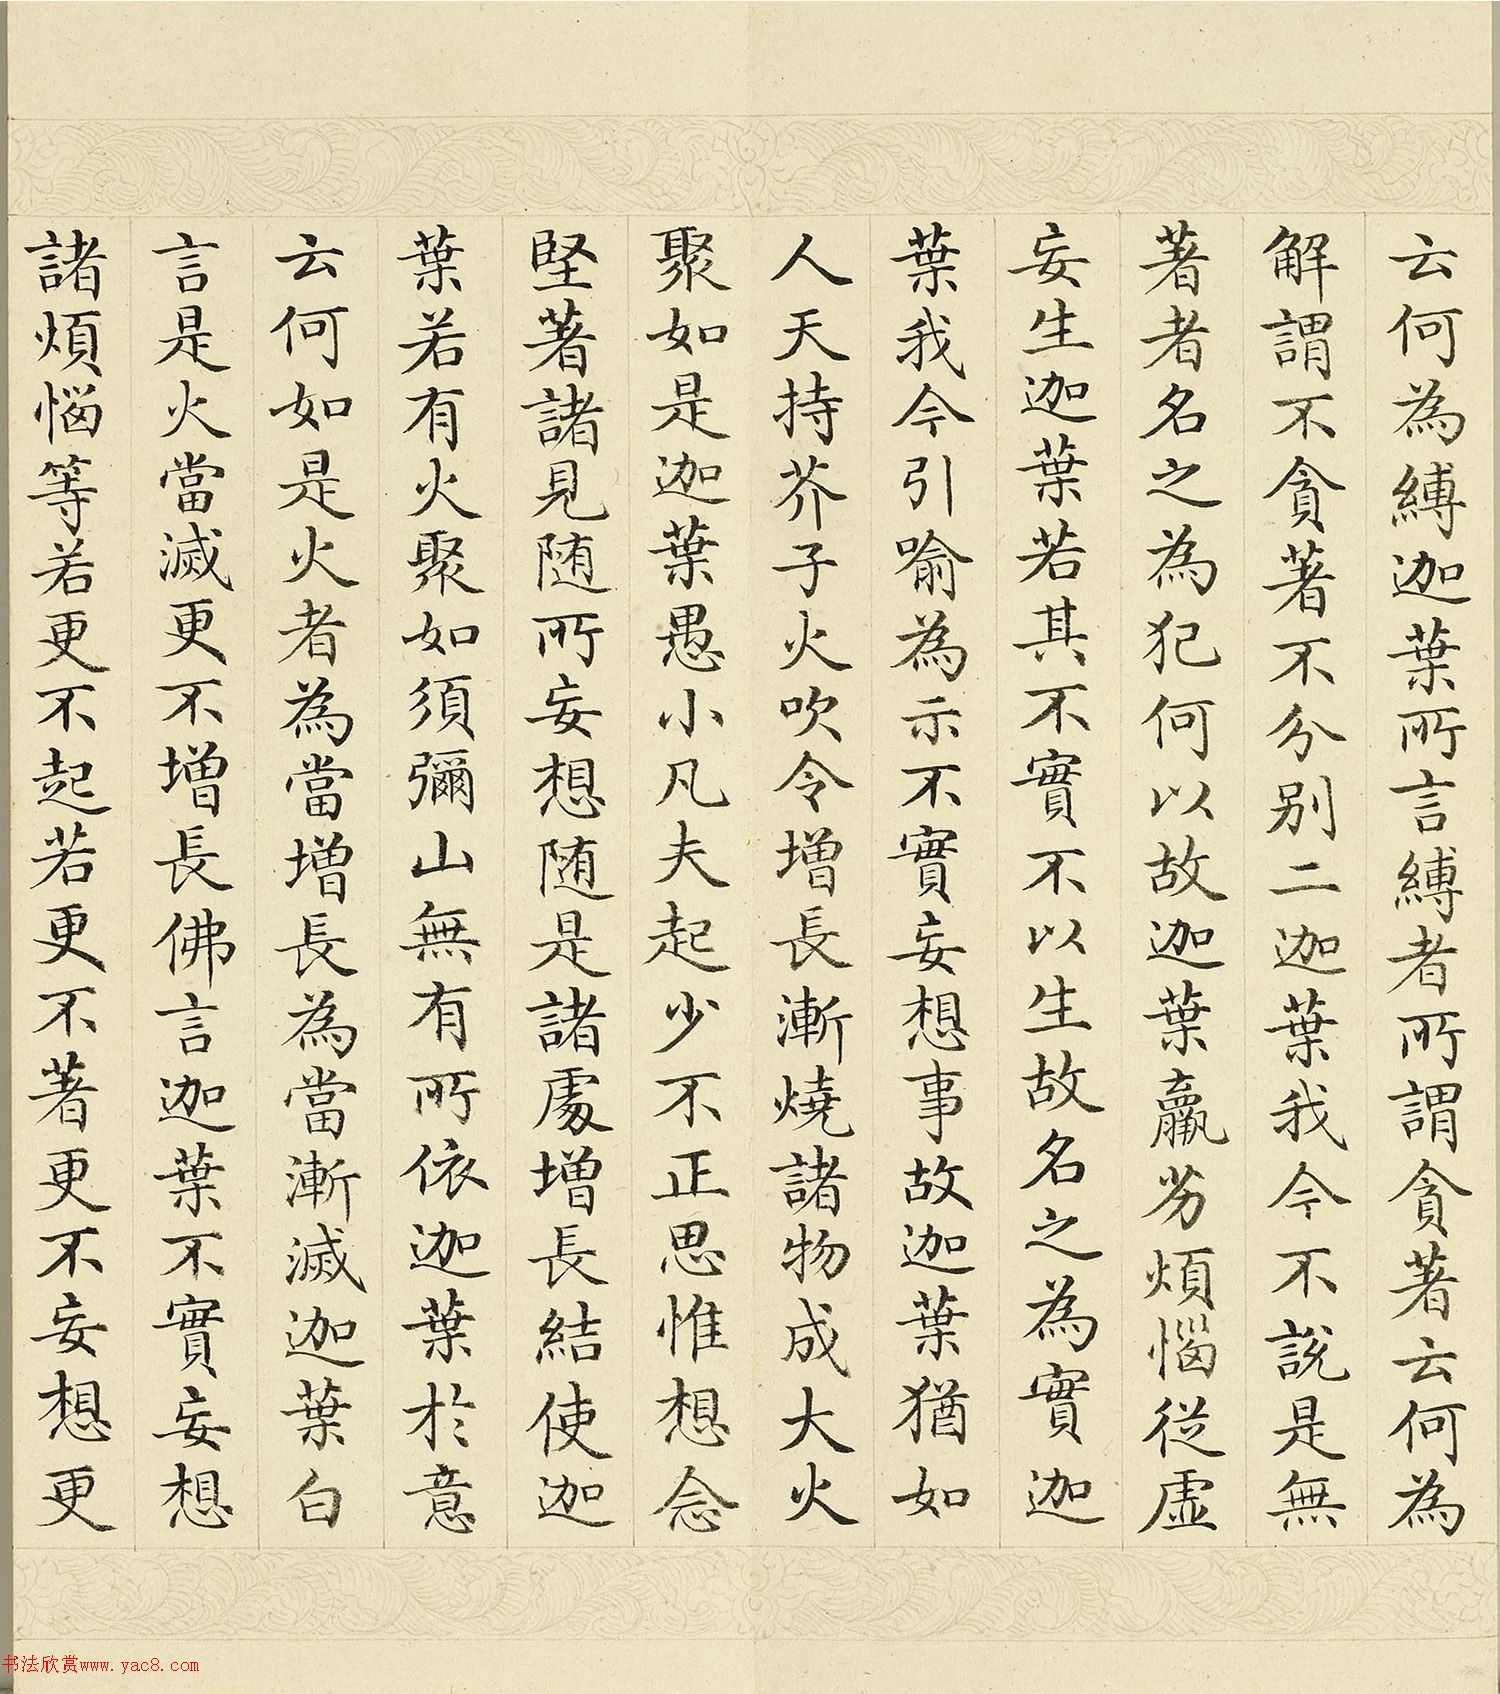 云何為縛迦葉所言縛者所謂貪著云何為
解謂不貪著不分別二迦葉我今不說是無
著者名之為犯何以故迦葉羸劣煩惱從虛
妄生迦葉若其不實不以生故名之為實迦
葉我今引喻為示不實妄想事故迦葉猶如
人天持芥子火吹令增長漸燒諸物成大火
聚如是迦葉愚小凡夫起少不正思惟想念
堅著諸見随所妄想随是諸處增長結使迦
葉若有火聚如須彌山無有所依迦葉於意
云何如是火者為當增長為當漸滅迦葉白
言是火當滅更不增長佛言迦葉不實妄想
諸煩惱等若更不起若更不著更不妄想更
书法欣赏www.yac8.com